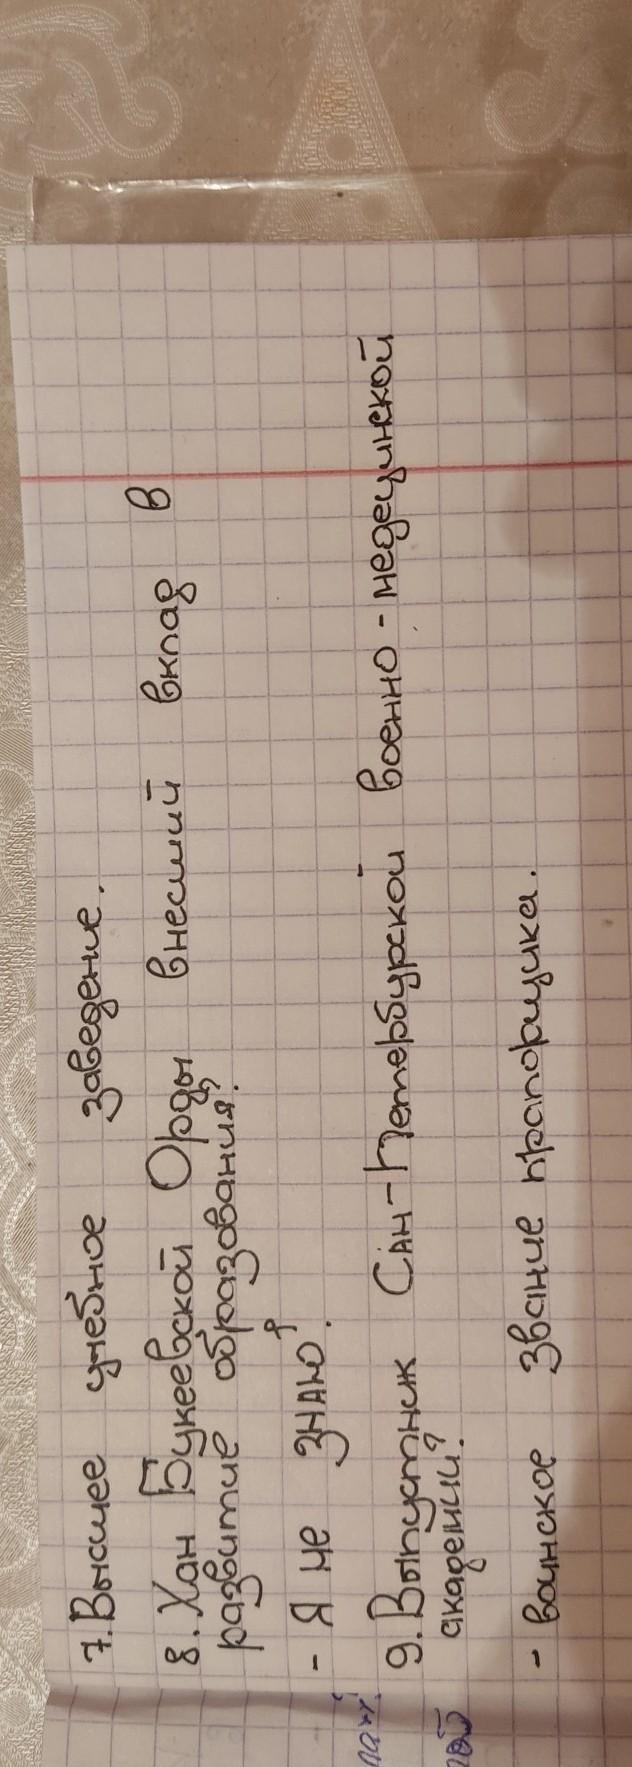 7. Высшее учебное заведение.
8. Хан Букеевской Орды внесший вклад в
развитие образования?
- Я не знаю.
9. Выпустник Сан-Петербурской военно-медецинской
академии?
- воинское звание прапорщика.